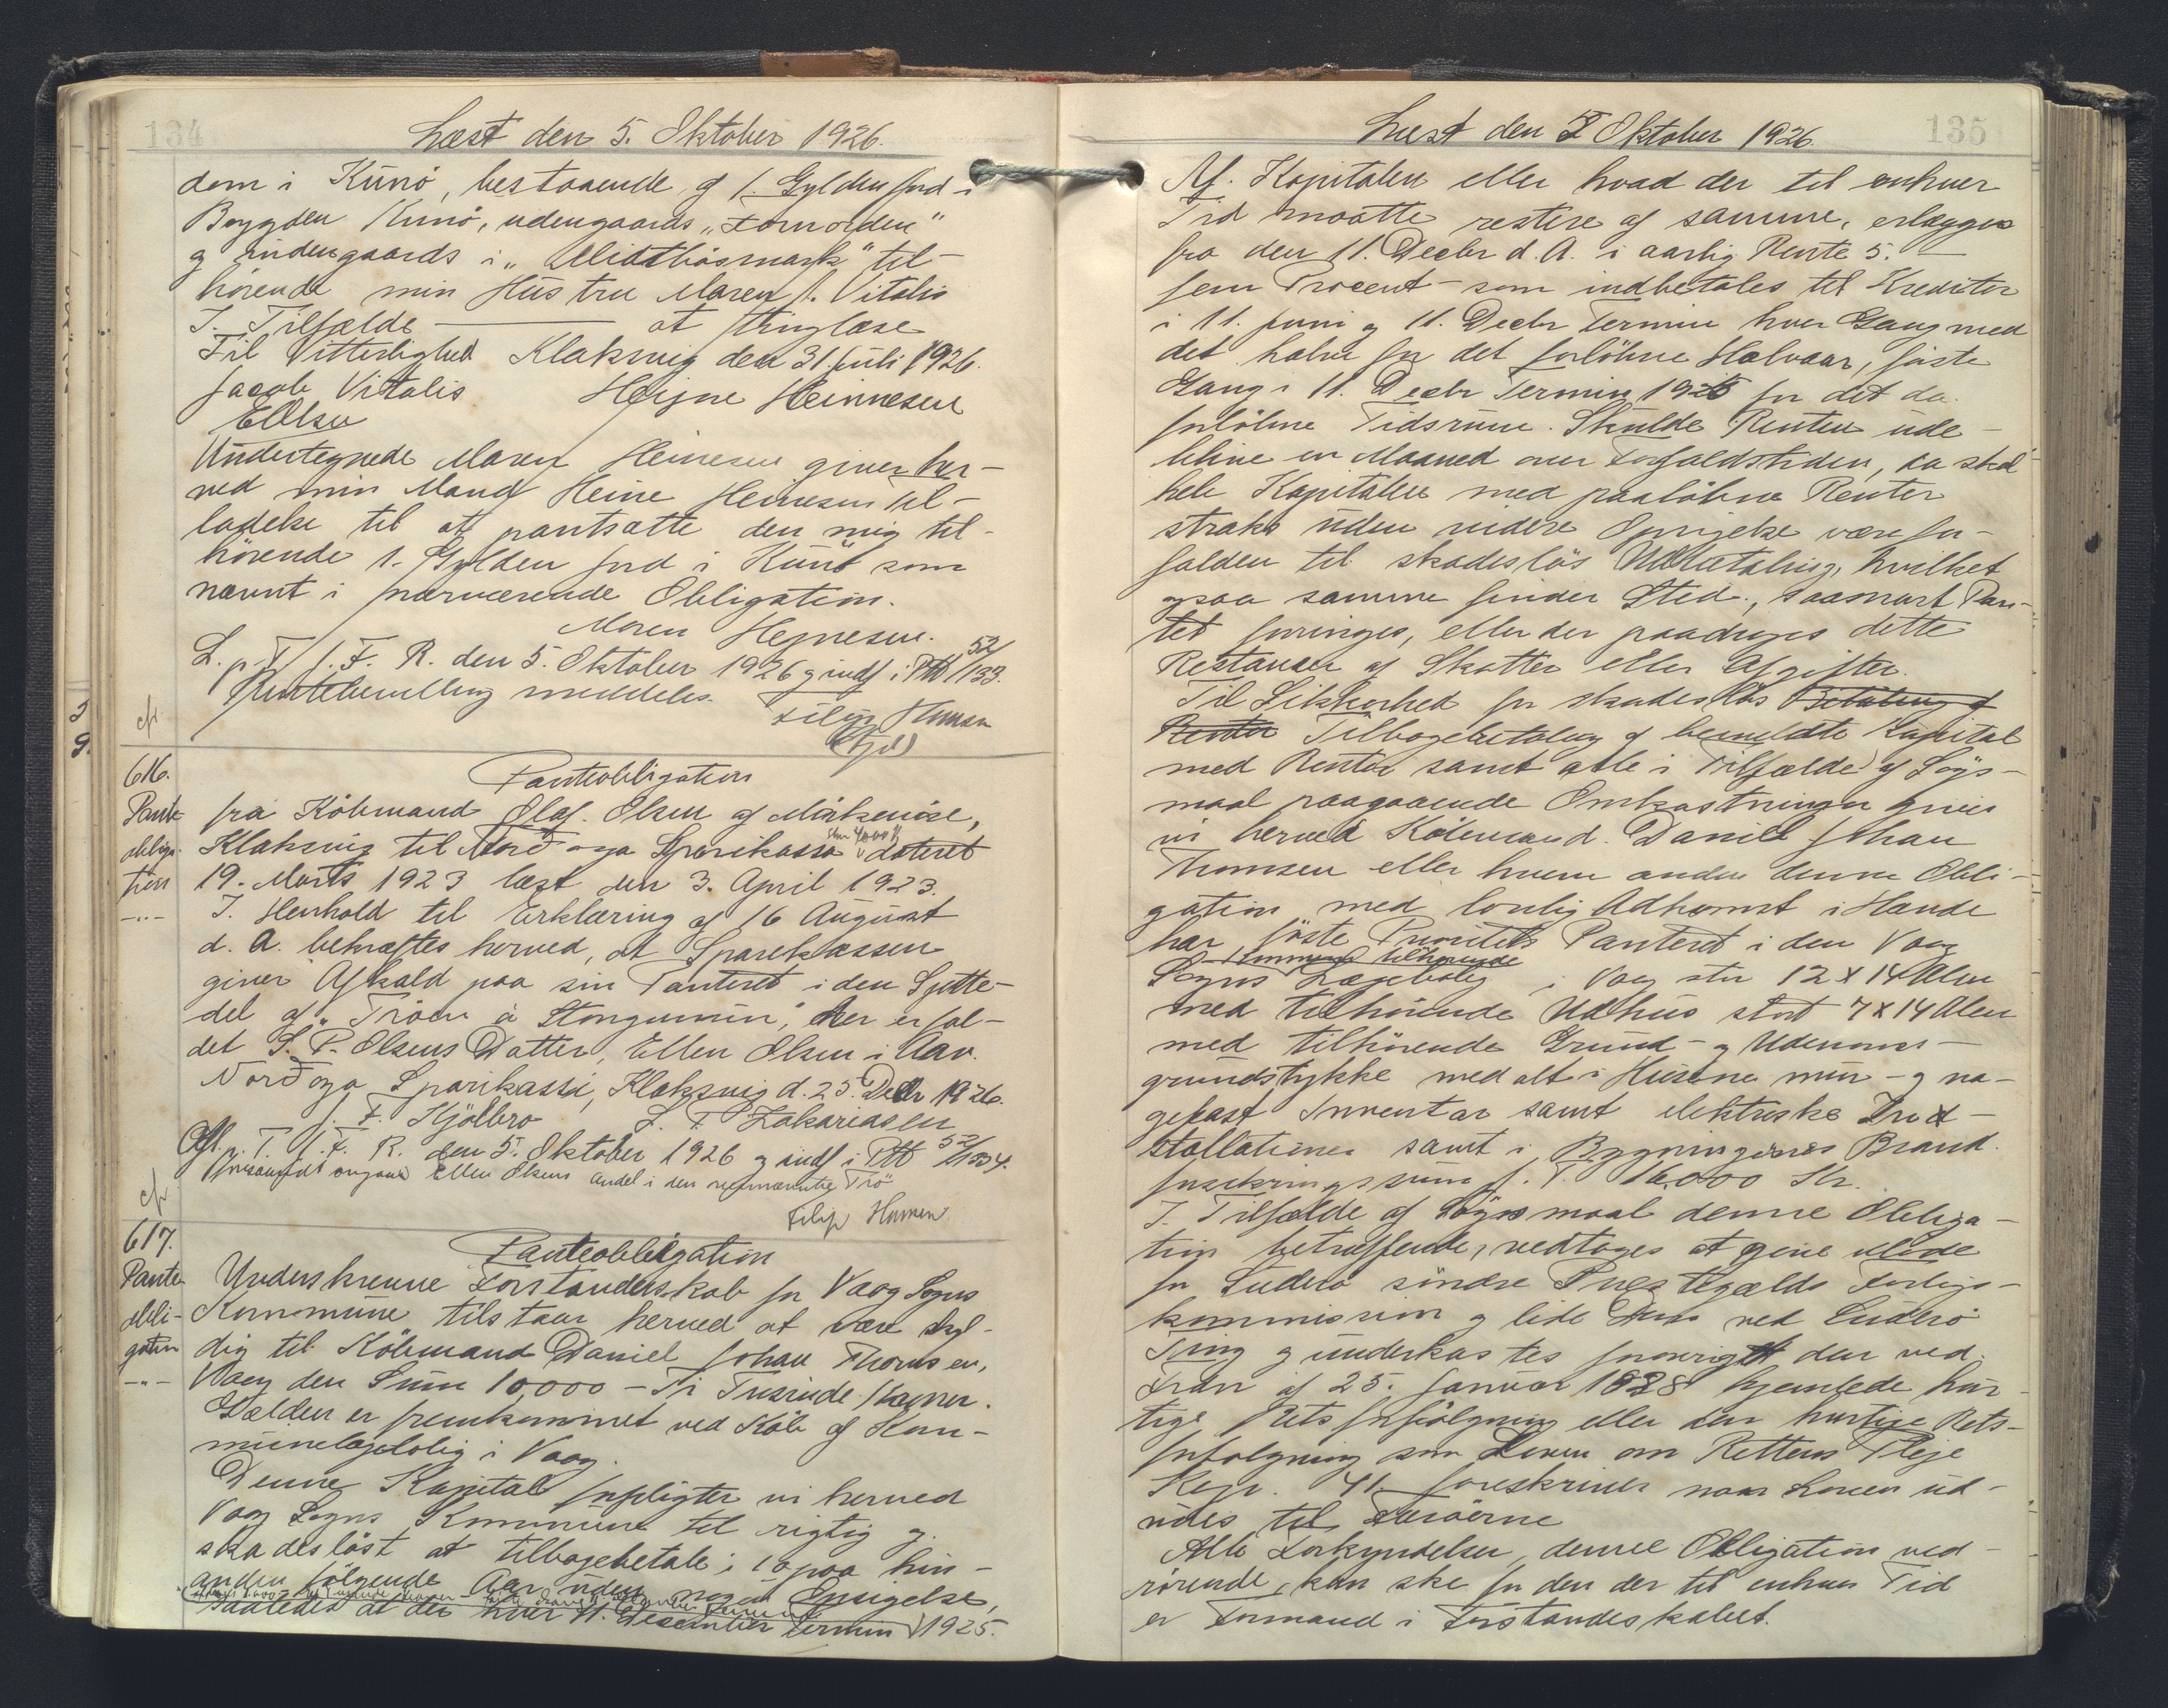 134
Læst den 5. Oktober 1926.
dom i Kunö, bestaaende af 1. Gylden Jord i
Bøygden Kunö, udengaards „Fornorden"
og indengaards i „Midtbösmark" til-
hörende min Hustru Maren f. Vitalis
I. Tilfælde ——— at thinglæse
Til Vitterlighed Klaksvig den 31. Juli 1926.
Jacob Vitalis Heijne Heinnesen
E Olsen
Undertegnede Maren Heinesen giver her-
ved min Mand Heine Heinesen til-
ladelse til at pantsætte den mig til-
hörende 1. Gylden Jord i Kunö som
nævnt i nærværende Obligation.
Maren Hejnesen.
L. p. T. f. F. R. den 5. Oktober 1926 og indf i Ptb 52/133.
meddeles.
cfr
616.
Pante
obliga-
tion
-..-
Panteobligation
fra Köbmand Olaf. Olsen af
Klaksvig til Nordoya Sparikassa stor 4000 Kr dateret
19. Marts 1923 læst den 3. April 1923.
I. Henhold til Erklæring af 16 August
d. A. bekræftes herved, at Sparekassen
giver Afkald paa sin Panteret i den Sjette-
del af „Tröen á Stongunum", der er fal-
det S. P. Olsens Datter, Ellen Olsen i Arv.
Nordoya Sparikassi, Klaksvig d. 25. 1926.
J. F. Kjölbro S. F. Zakariasen
Afl. p. T. f. F. R. den 5. Oktober 1926 og indf i Ptb 52/134.
angaar Ellen Olsens andel i den Trö
cfr
617.
Pante
obli-
gation
-"-
Panteobligation
Underskrevne Forstanderskab for Vaag Sogns
Kommune tilstaar herved at være skyl-
dig til Köbmand Daniel Johan Thomsen,
Vaag den Sum 10,000 - Ti Tusinde Kroner.
Gælden er fremkommet ved Köb af Kom-
munelægebolig i Vaag.
Denne Kapital forpligter vi herved
Vaag Sogns Kommune til rigtig og
skadeslöst at tilbagebetale i 10 paa hin-
anden fölgende Aar uden nogen Opsigelse,
saaledes at der hver 11. December Termin 1925.
135
Læst den 5 Oktober 1926.
Af. Kapitalen eller hvad der til enhver
Tid maatte restere af samme, erlægges
fra den 11. Decbr d. A. i aarlig Rente 5. -
fem Procent - som indbetales til Kreditor
i 11. Juni og 11. Decbr Termin hver Gang med
det halve for det forlöbne Halvaar, förste
Gang i 11. Decbr Termin 1925 for det da
forlöbne Tidsrum. Skulde Renten ude-
blive en Maaned over Forfaldstiden, da skal
hele Kapitalen med paalöbne Renter
straks uden videre Opsigelse være for-
falden til skadeslös Udbetaling, hvilket
ogsaa samme finder Sted., saasnart Pan-
tet forringes, eller der paadrages dette
Restancer af Skatter eller Afgifter.
Til Sikkerhed for skadeslös Betaling af
Renter Tilbagebetaling af bemeldte Kapital
med Renter samt alle i Tilfælde af Sögs-
maal paagaaende Omkostninger giver
vi herved Köbmand. Daniel Johan
Thomsen eller hvem anden denne Obli-
gation med lovlig Adkomst i Hænde
har, förste Prioritets Panteret i den Vaag
Kommune tilhörende
Sogns Lægebolig i Vaag stor 12 x 14 Alen
med tilhörende Udhus stort 7 x 14 Alen
med tilhörende Grund- og Udenoms-
grundstykke med alt i Husene mur- og na-
gelfast Inventar samt elektriske Ind-
stallationer samt i Bygningernes Brand-
forsikringssum f. T. 16000 Kr.
I. Tilfælde af Sögsmaal denne Obliga-
tion betræffende, vedtages at give Möde
for Suderö söndre Præstegælds Forligs-
kommission og lide Dom ved Suderö
Ting og underkastes forövrigt den ved
Frdn af 25. Januar 1828 hjemlede hur-
tige Retsforfölgning eller den hurtige Rets-
forfölgning som Loven om Rettens Pleje
Kap. 41 foreskriver naar Loven ud-
vides til Færöerne
Alle Forkyndelser, denne Obligation ved-
rörende, kan ske for den der til enhver Tid
er Formand i Forstanderskabet.